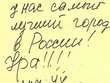 у нас самый
лучший город
в России!
Ура!!!!